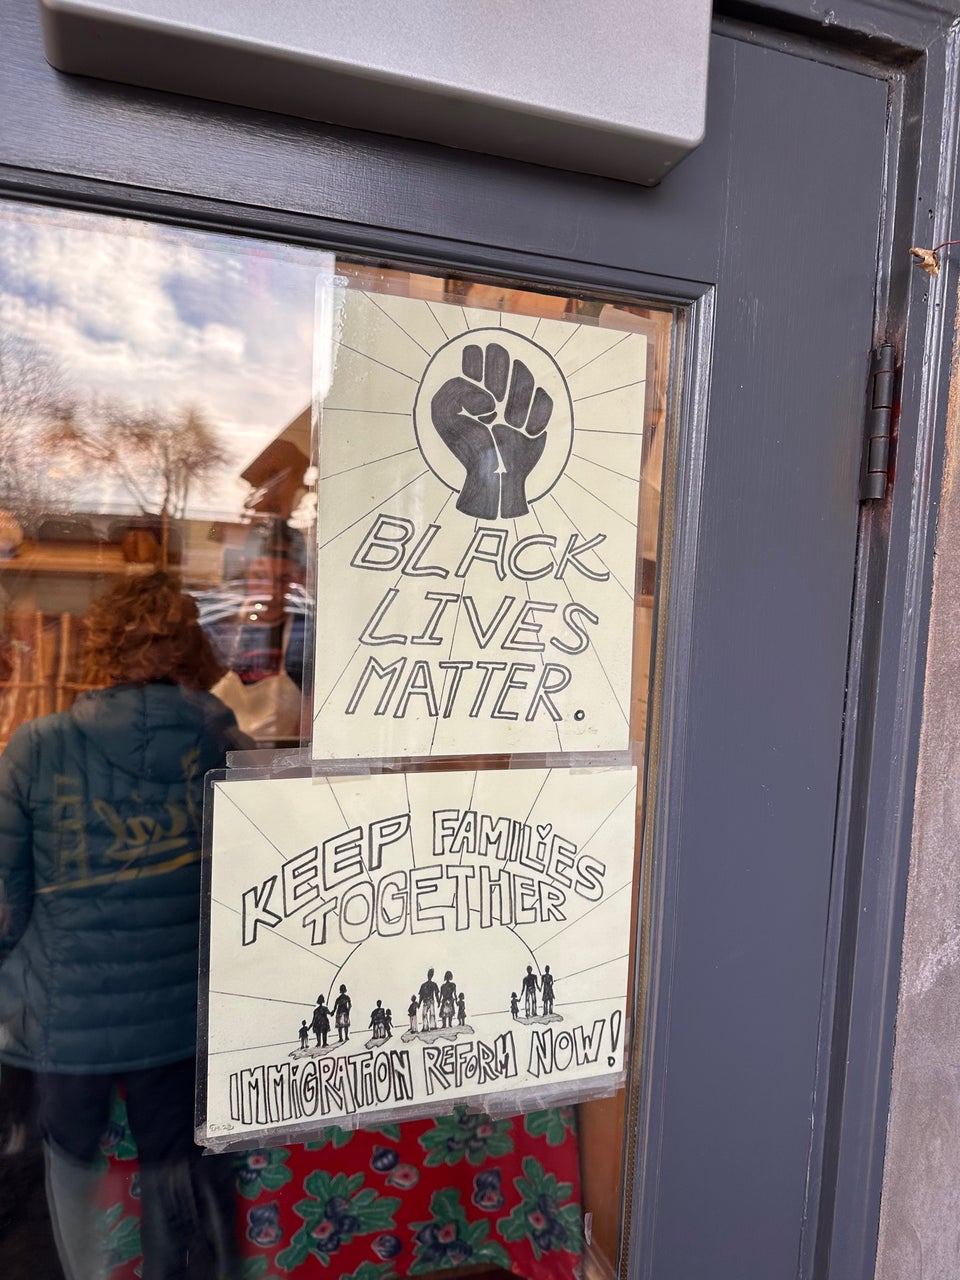 BLACK
LIVES
MATTER.
KEEP FAMILIES
TOGETHER
IMMIGRATION REFORM NOW!